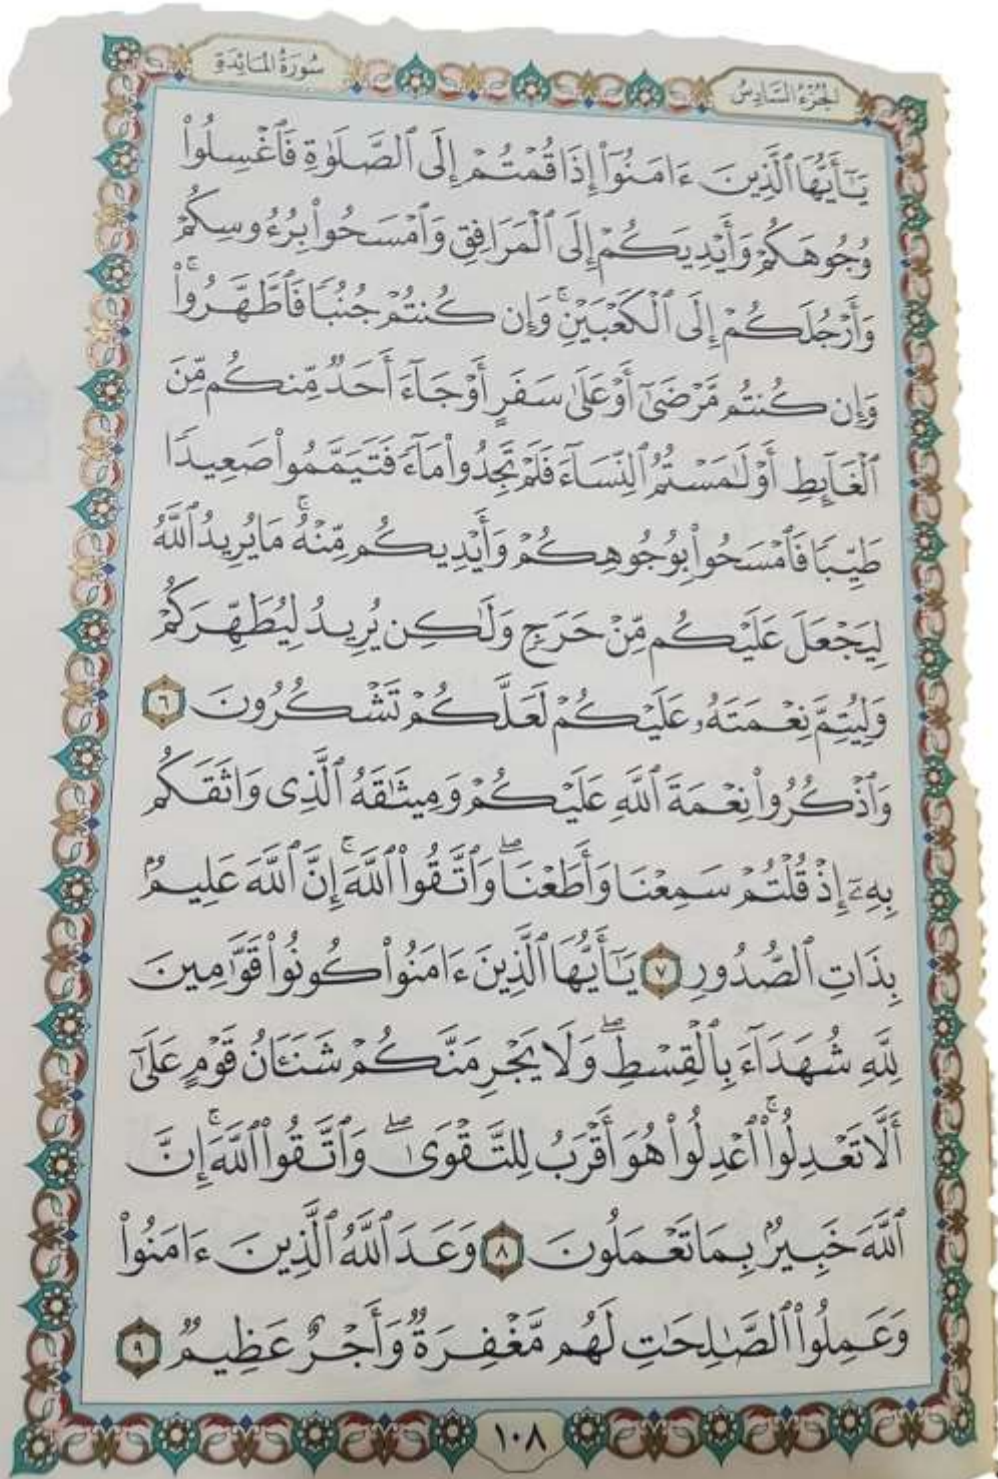 الجزء السادس
سورة المائدة
يَـٰٓأَيُّهَا ٱلَّذِينَ ءَامَنُوٓا۟ إِذَا قُمْتُمْ إِلَى ٱلصَّلَوٰةِ فَٱغْسِلُوا۟
وُجُوهَكُمْ وَأَيْدِيَكُمْ إِلَى ٱلْمَرَافِقِ وَٱمْسَحُوا۟ بِرُءُوسِكُمْ
وَأَرْجُلَكُمْ إِلَى ٱلْكَعْبَيْنِ ۚ وَإِن كُنتُمْ جُنُبًا فَٱطَّهَّرُوا۟ ۚ
وَإِن كُنتُم مَّرْضَىٰٓ أَوْ عَلَىٰ سَفَرٍ أَوْ جَآءَ أَحَدٌ مِّنكُم مِّنَ
ٱلْغَآئِطِ أَوْ لَـٰمَسْتُمُ ٱلنِّسَآءَ فَلَمْ تَجِدُوا۟ مَآءً فَتَيَمَّمُوا۟ صَعِيدًا
طَيِّبًا فَٱمْسَحُوا۟ بِوُجُوهِكُمْ وَأَيْدِيكُم مِّنْهُ ۚ مَا يُرِيدُ ٱللَّهُ
لِيَجْعَلَ عَلَيْكُم مِّنْ حَرَجٍ وَلَـٰكِن يُرِيدُ لِيُطَهِّرَكُمْ
وَلِيُتِمَّ نِعْمَتَهُۥ عَلَيْكُمْ لَعَلَّكُمْ تَشْكُرُونَ ٦
وَٱذْكُرُوا۟ نِعْمَةَ ٱللَّهِ عَلَيْكُمْ وَمِيثَـٰقَهُ ٱلَّذِى وَاثَقَكُم
بِهِۦٓ إِذْ قُلْتُمْ سَمِعْنَا وَأَطَعْنَا ۖ وَٱتَّقُوا۟ ٱللَّهَ ۚ إِنَّ ٱللَّهَ عَلِيمٌۢ
بِذَاتِ ٱلصُّدُورِ ٧ يَـٰٓأَيُّهَا ٱلَّذِينَ ءَامَنُوا۟ كُونُوا۟ قَوَّٰمِينَ
لِلَّهِ شُهَدَآءَ بِٱلْقِسْطِ ۖ وَلَا يَجْرِمَنَّكُمْ شَنَـَٔانُ قَوْمٍ عَلَىٰٓ
أَلَّا تَعْدِلُوا۟ ۚ ٱعْدِلُوا۟ هُوَ أَقْرَبُ لِلتَّقْوَىٰ ۖ وَٱتَّقُوا۟ ٱللَّهَ ۚ إِنَّ
ٱللَّهَ خَبِيرٌۢ بِمَا تَعْمَلُونَ ٨ وَعَدَ ٱللَّهُ ٱلَّذِينَ ءَامَنُوا۟
وَعَمِلُوا۟ ٱلصَّـٰلِحَـٰتِ لَهُم مَّغْفِرَةٌ وَأَجْرٌ عَظِيمٌ ٩
١٠٨